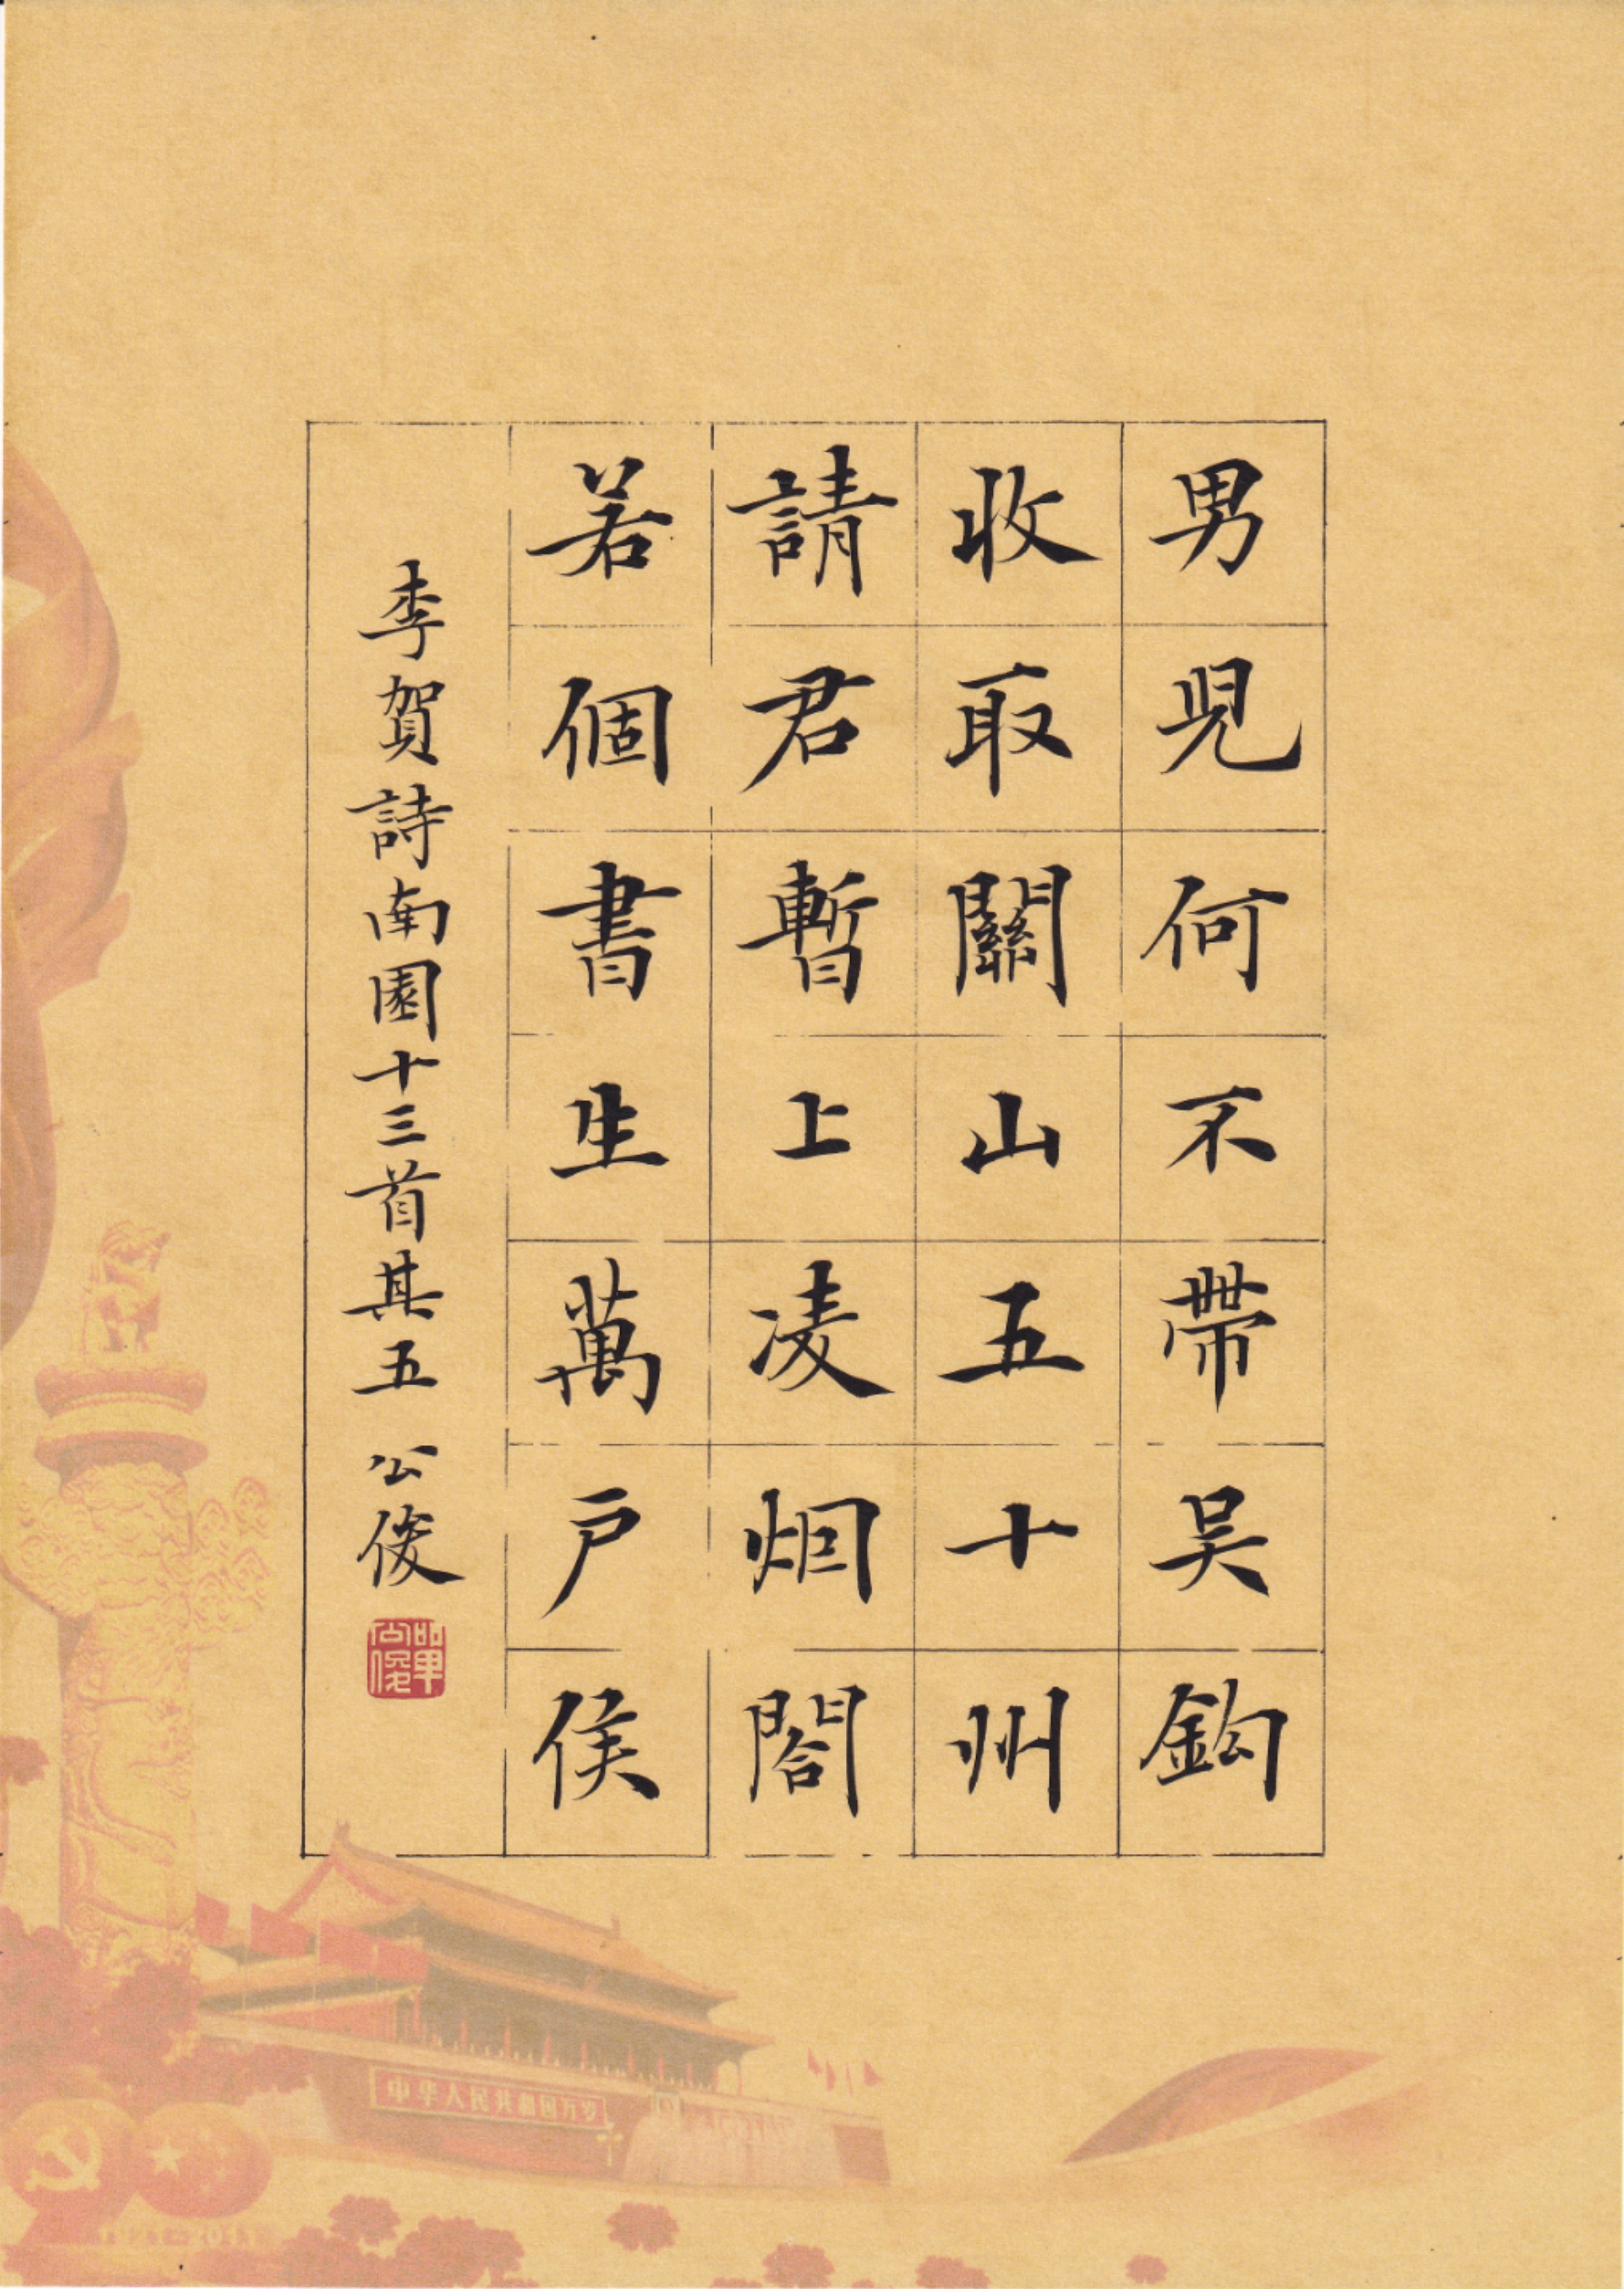 男兒何不帶吴鈎
收取關山五十州
請君暫上凌烟閣
若個書生萬户侯
李賀詩南園十三首其五 公俊
中华人民共和国万岁